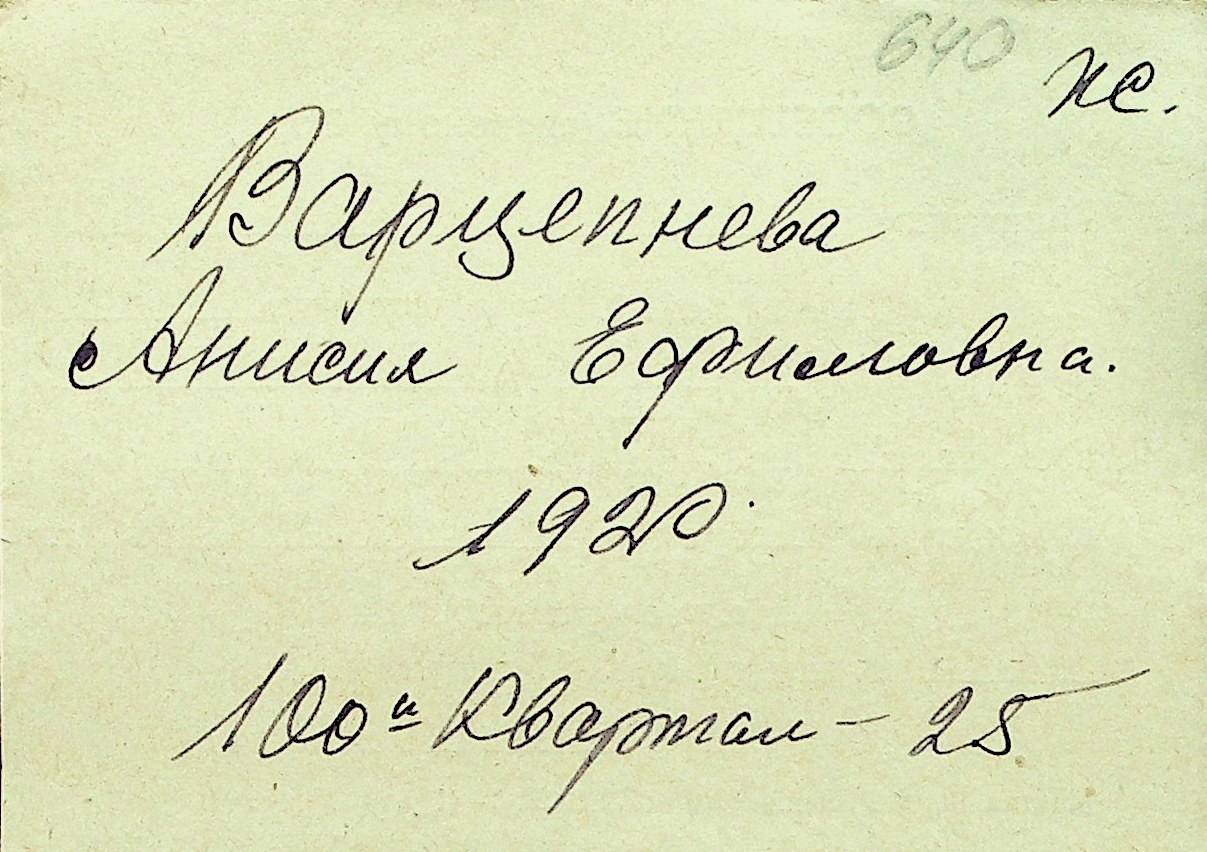 640
пс.
Варцепнева
Анисия Ефимовна.
1920.
100й Квартал - 25